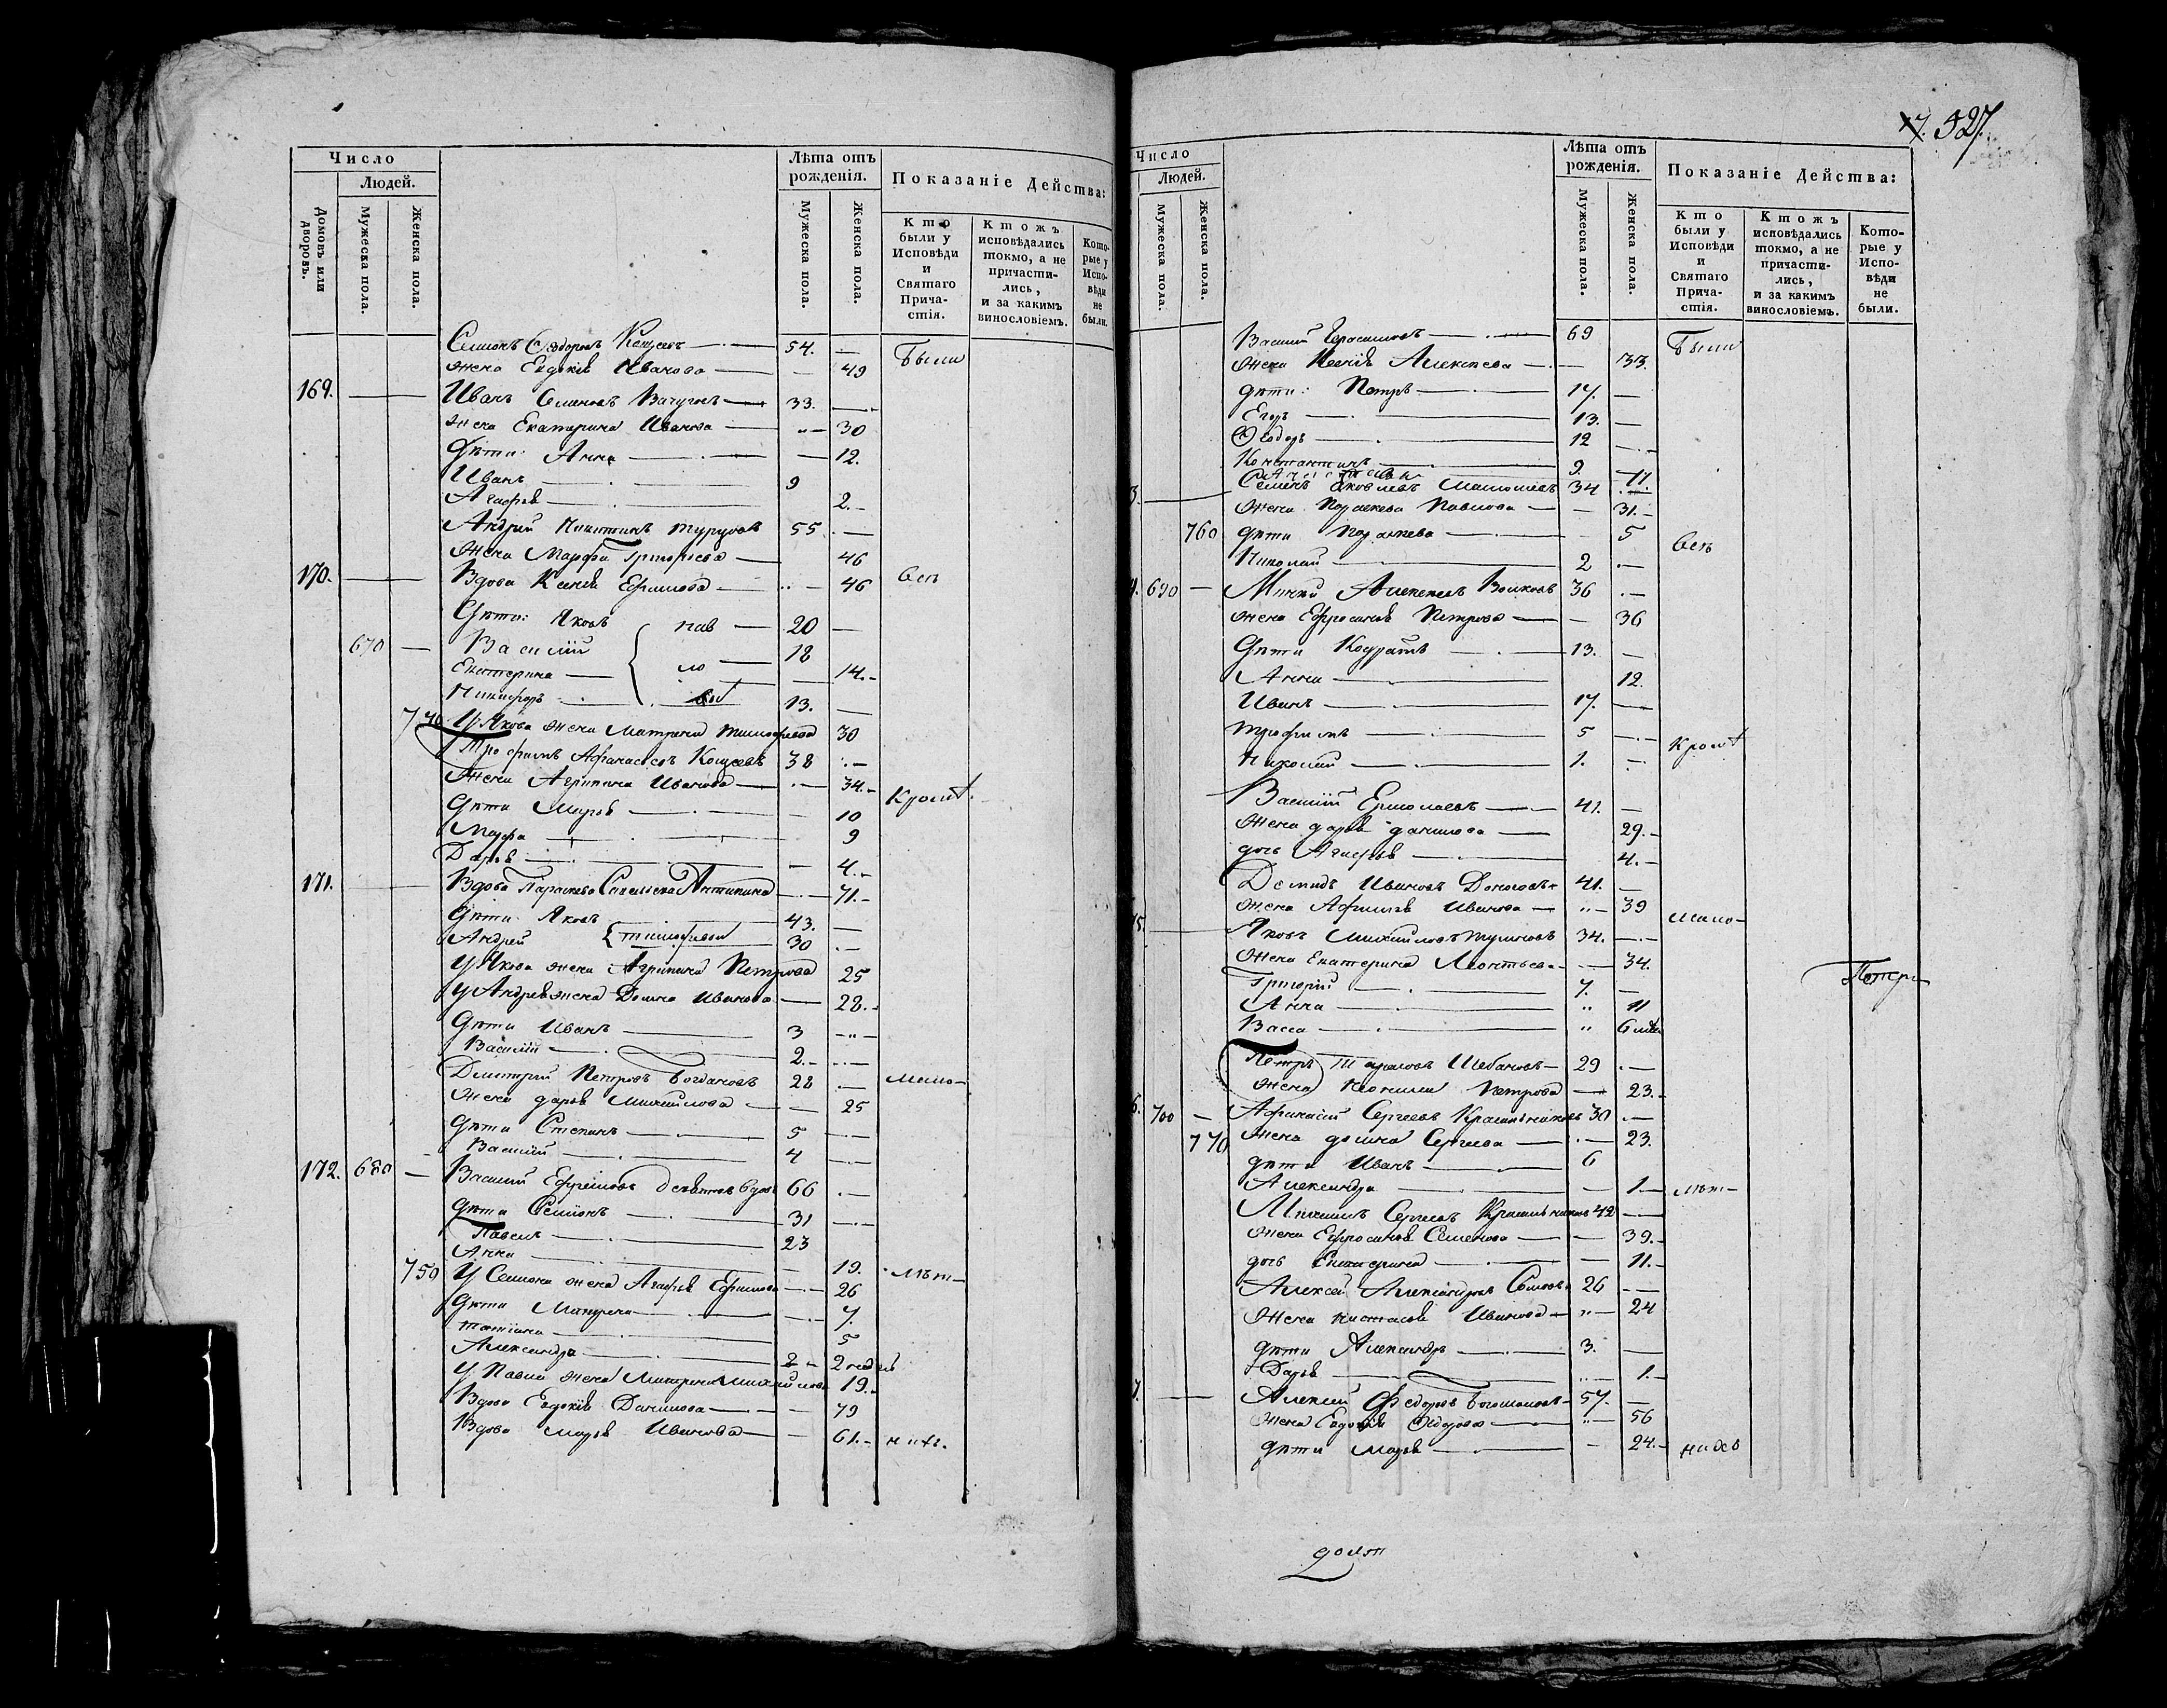 Число
Людей.
Домовъ или дворовъ.
Мужеска пола.
Женска пола.
Лѣта отъ рожденія.
Мужеска пола.
Женска пола.
Показаніе Действа:
Кто были у Исповѣди и Святаго Прича-стія.
Ктожъ исповѣдались токмо, а не причасти-лись, и за какимъ винословіемъ.
Кото-рые у Испо-вѣди не были.
Семионъ Ѳедоровъ 54. Были
жена Евдокія Иванова 49
169. Иванъ Семеновъ 33.
жена Екатерина Иванова 30
Дѣти: Анна 12.
Иванъ 9
Агафья 2.
Андрей Никитинъ 55
жена Марфа Григорьева 46
170. Вдова Ксенія Ефимова 46 всѣ
Дѣти: Яковъ пав 20
670 Василій ло 18
Екатерина 14.
Никифоръ вы 13.
740 У Якова жена Матрена Тимофеева 30
Трофимъ Афанасьевъ 38
Жена Агрипина Иванова 34. Кромѣ
Дѣти Марья 10
Марфа 9
Дарья 4.
171. Вдова Параскева Савельева Антипина 71.
Дѣти Яковъ 43.
Андрей Тимофеевы 30
У Якова жена Агрипина Петрова 25
У Андрея жена Домна Иванова 28.
Дѣти Иванъ 3
Василій 2.
Дмитрій Петровъ Богдановъ 28 мало-
Жена Дарья Михайлова 25
Дѣти Степанъ 5
Василій 4
172. 680 Василій Ефремовъ вдовъ 66
Дѣти Семионъ 31
Павелъ 23
Анна 19. лѣт-
750 У Семиона жена Агафья Ефимова 26
Дѣти Матрена 7.
Татіана 5
Александра 2 недѣль
У Павла жена Матрена Михайлова 19.
Вдова Евдокія Данилова 79
Вдова Марья Иванова 61. нихъ.
527.
Число
Людей.
Мужеска пола.
Женска пола.
Лѣта отъ рожденія.
Мужеска пола.
Женска пола.
Показаніе Действа:
Кто были у Исповѣди и Святаго Прича-стія.
Ктожъ исповѣдались токмо, а не причасти-лись, и за какимъ винословіемъ.
Кото-рые у Испо-вѣди не были.
Василій Герасимовъ 69 Были
жена Ксенія Алексѣева 33.
дѣти: Петръ 17.
Егоръ 13.
Ѳеодоръ 12
Константинъ 9.
11.
3. Семенъ Яковлевъ 34
жена Параскева Павлова 31.
760 дѣти Параскева 5 всѣ
Николай 2
4. 690 Алексѣевъ Волковъ 36
жена Ефросинья Петрова 36
Дѣти Кодратъ 13.
Анна 12.
Иванъ 17.
Трофимъ 5 Кромѣ
Николай 1.
Василій Ермолаевъ 41.
жена Дарья Данилова 29.
дочь Агафья 4.
Демидъ Ивановъ 41.
жена Афимья Иванова 39 мало-
5. Яковъ Михайловъ 34.
жена Екатерина Леонтьева 34.
Григорій 7.
Анна 11
Васса 6
Петръ Тарасовъ Шебановъ 29
жена Петрова 23.
6. 700 Афанасій Сергеевъ Красильниковъ 30
770 жена Домна Сергеева 23.
дѣти Иванъ 6
Александра 1. лѣт-
Михаилъ Сергеевъ Красильниковъ 42
жена Ефросинья Семенова 39.
дочь Екатерина 11.
Алексей Александровъ 26
жена Настасья Иванова 24
дѣти Александръ 3.
Дарья 1.
7. Алексей Федоровъ 57.
жена Евдокія Федорова 56
дѣти Марья 24. нихъ